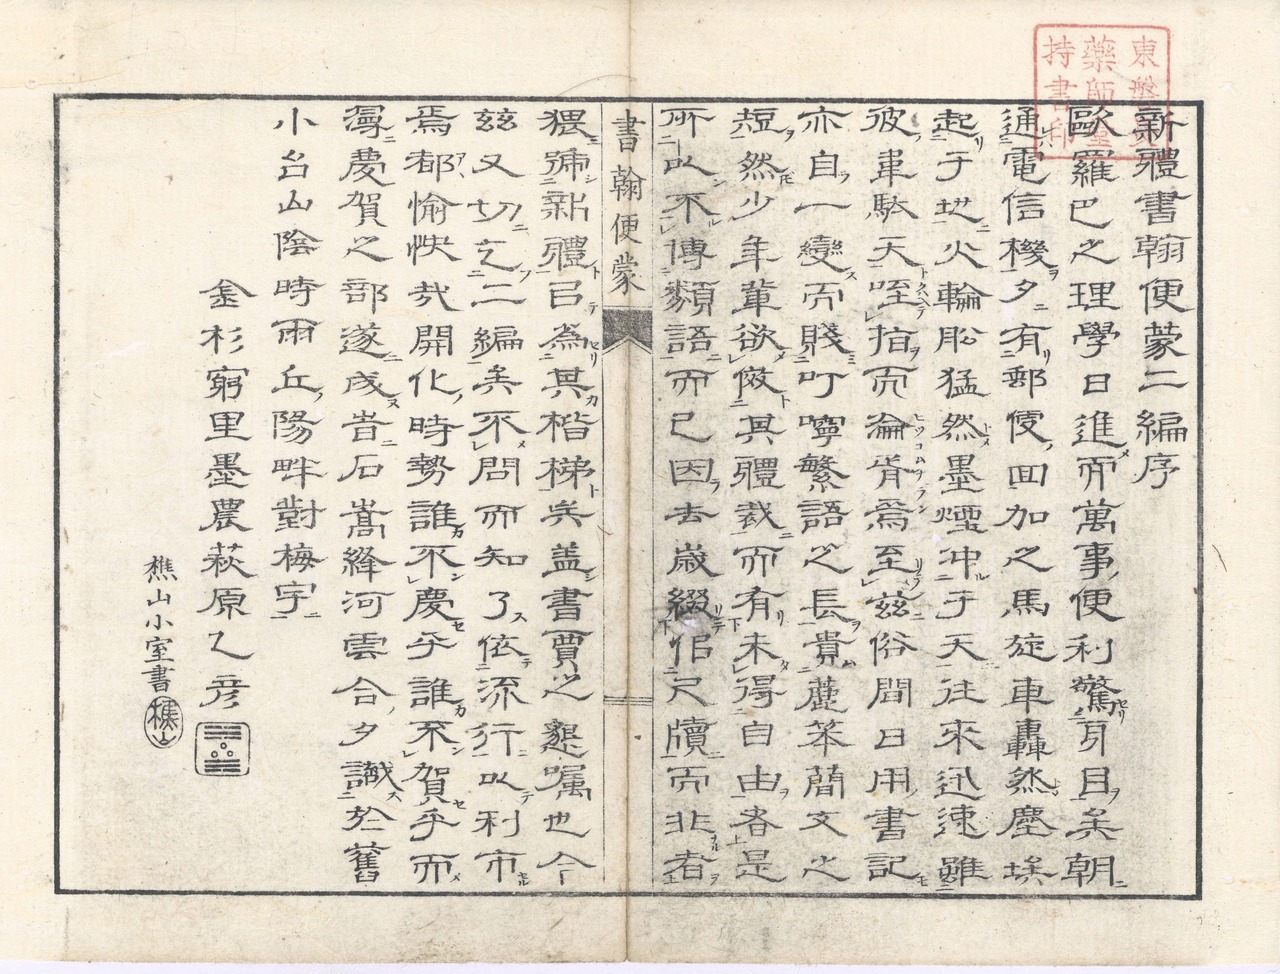 新體書翰便蒙二編序
歐羅巴之理學日進而萬事便利驚耳目矣朝
通電信機夕有郵便回加之馬旋車轟然塵埃
起于地火輪船猛然墨煙冲于天往來迅速雖
彼韋馱天咥指而淪胥焉至茲俗間日用書記
亦自一變而賤叮嚀繁語之長貴麁笨簡文之
短然少年輩欲傚其體裁而有未得自由者是
所以不傳類語而已因去歲綴俗尺牘而非者
書翰便蒙
猥號新體已為其楷梯矣盖書賈之懇嘱也今
茲又切乞二編矣不問而知了依流行以利市
焉都愉快哉開化時勢誰不慶乎誰不賀乎而
得慶賀之部遂成旹石嵩絳河雲合夕識於舊
小台山陰時雨丘陽畔對梅宇
金杉窮里墨農萩原乙彦
樵山小室書
樵山
東磐井
藥師堂
持書印